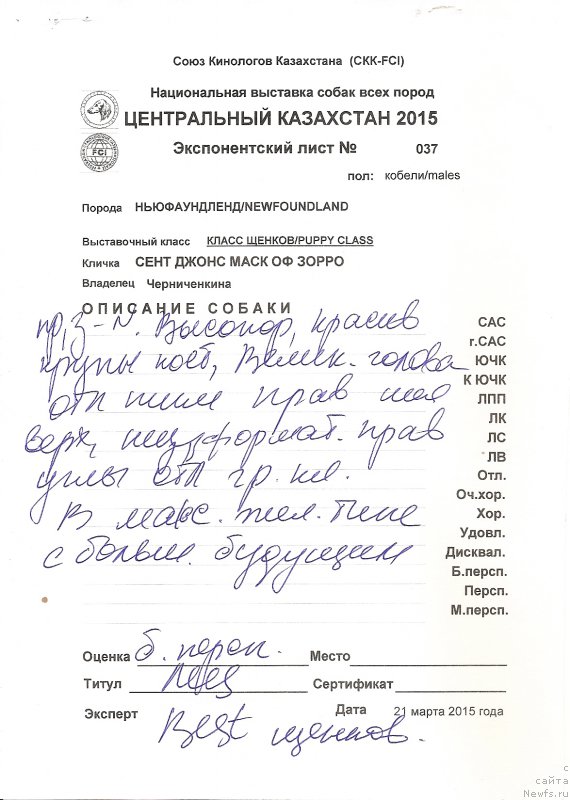 Союз Кинологов Казахстана (СКК-FCI)
Национальная выставка собак всех пород
ЦЕНТРАЛЬНЫЙ КАЗАХСТАН 2015
FCI
Экспонентский лист № 037
пол: кобели/males
Порода НЬЮФАУНДЛЕНД/NEWFOUNDLAND
Выставочный класс КЛАСС ЩЕНКОВ/PUPPY CLASS
Кличка СЕНТ ДЖОНС МАСК ОФ ЗОРРО
Владелец Черниченкина
ОПИСАНИЕ СОБАКИ
Высопор, красив
крупы кост, Велик. голова
отл пигм прав шея
верх, формат. прав
углы отл гр. кл.
В макс. жел. типе
с больш. будущим
САС
г.САС
ЮЧК
К ЮЧК
ЛПП
ЛК
ЛС
ЛВ
Отл.
Оч.хор.
Хор.
Удовл.
Дисквал.
Б.персп.
Персп.
М.персп.
Оценка б. персп. Место
Титул Сертификат
Эксперт Дата 21 марта 2015 года
Best щенков.
с
сайта
Newfs.ru